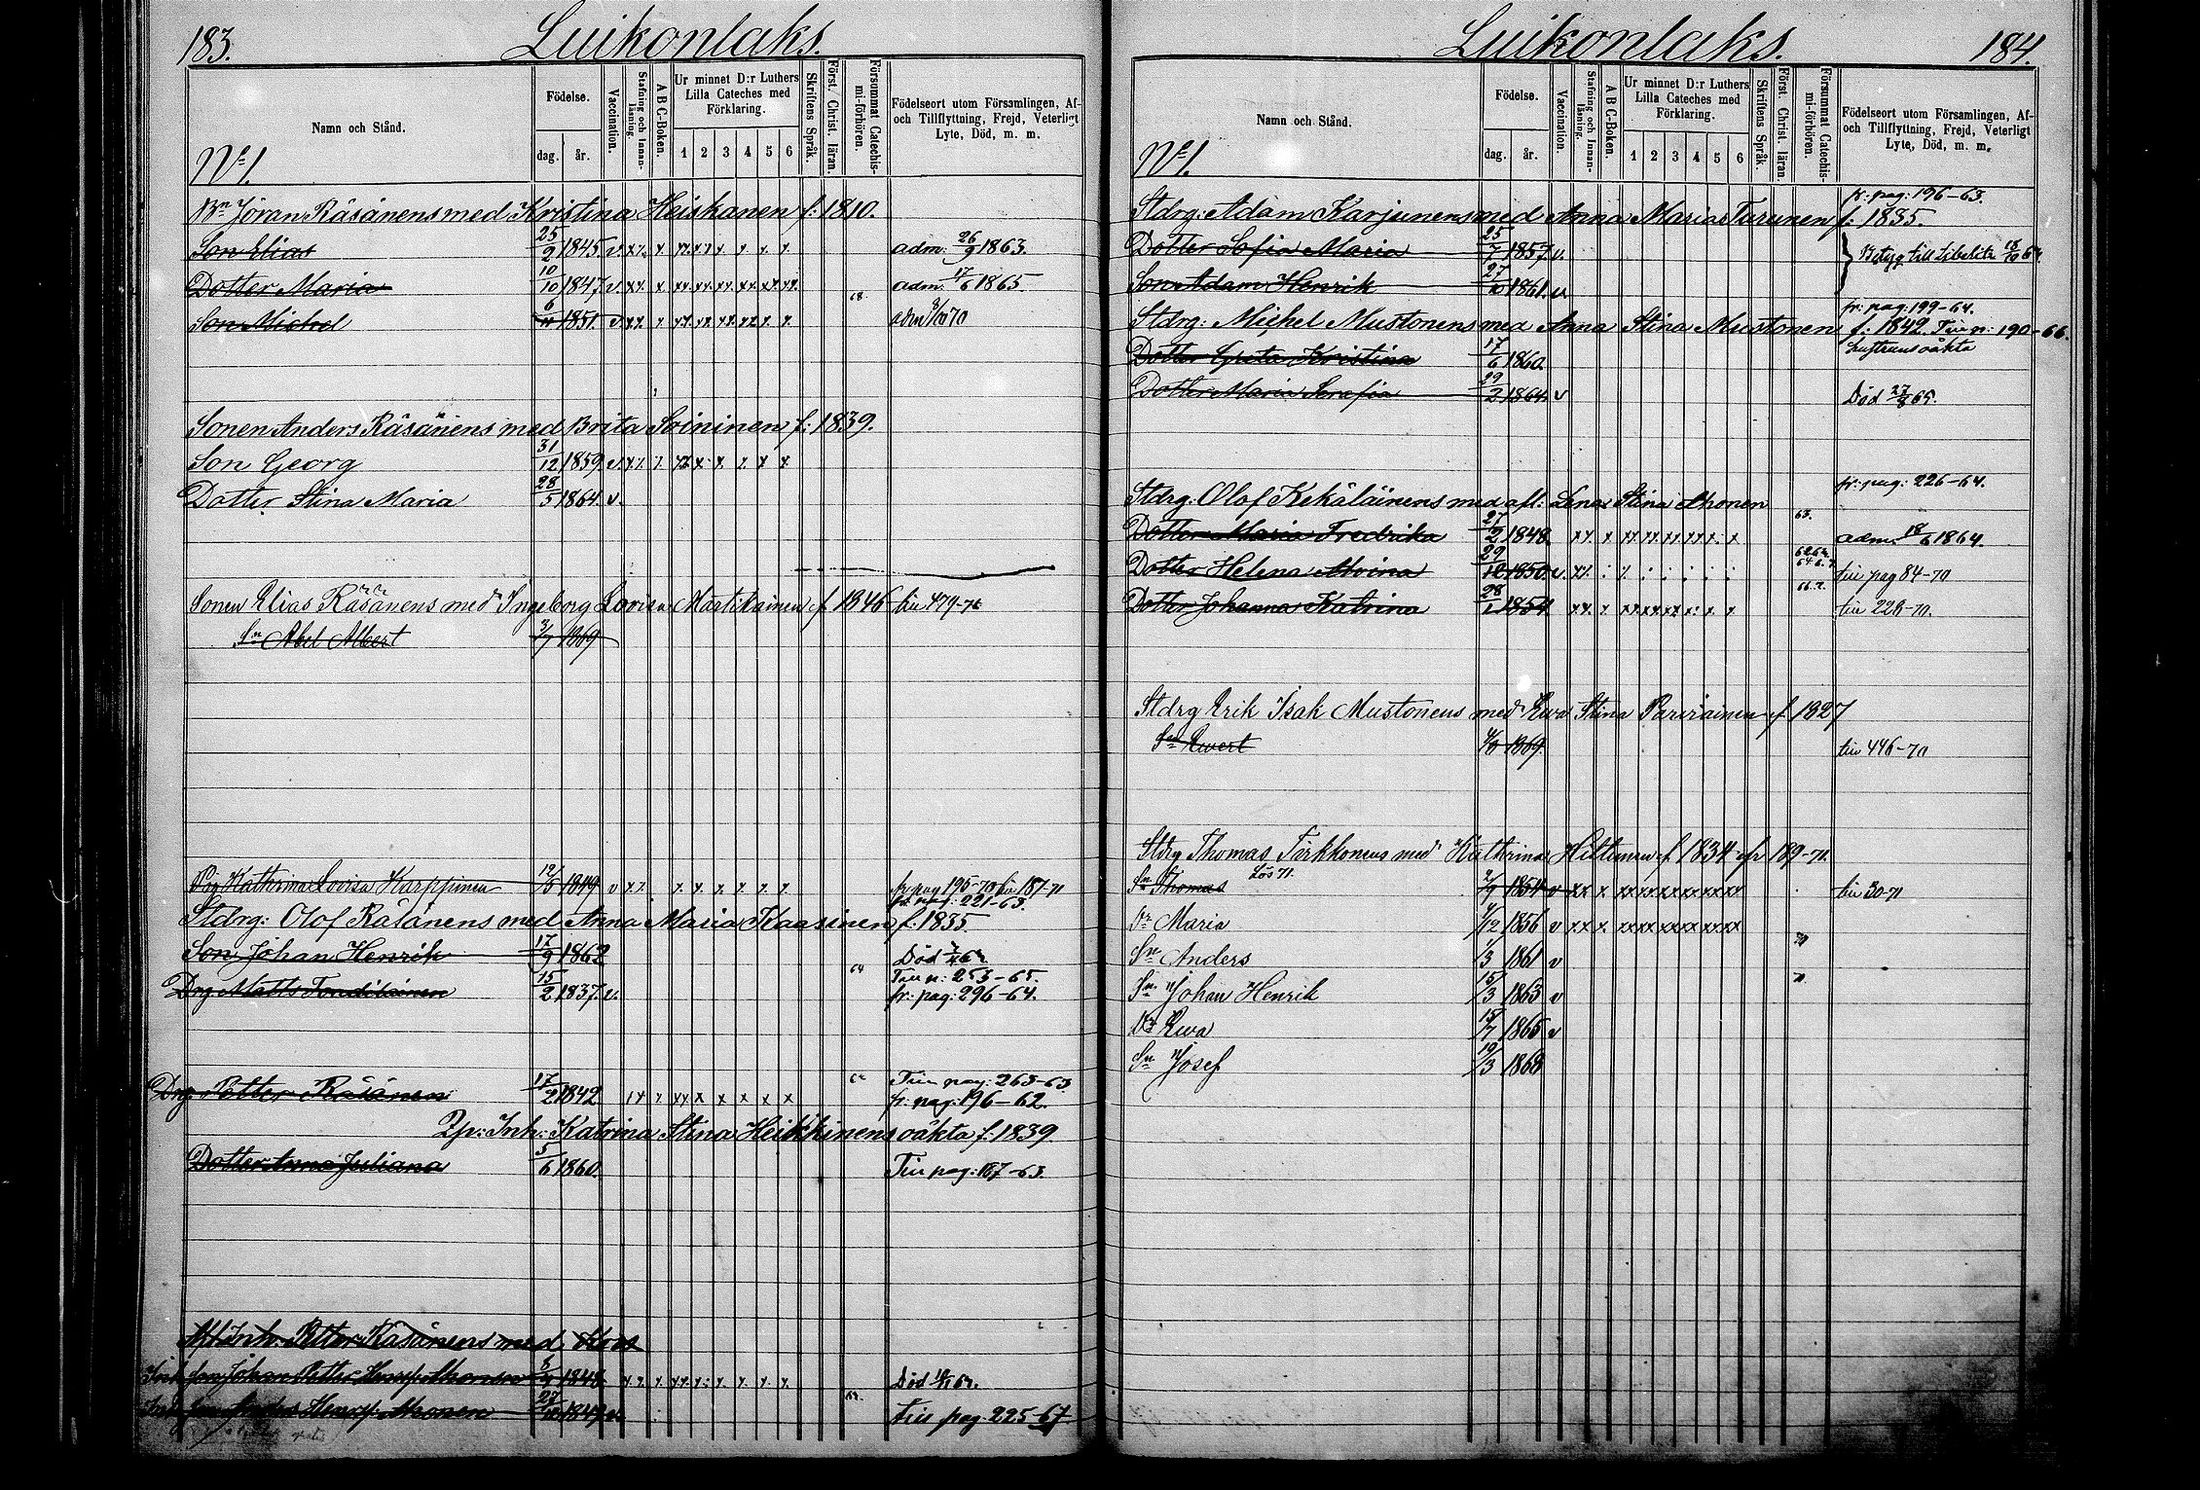 183.
Luikonlaks.
Namn och Stånd.
Födelse.
dag. år.
Vaccination.
Stafning och Innanläsning.
A B C-Boken.
Ur minnet D:r Luthers Lilla Cateches med Förklaring.
1 2 3 4 5 6
Skriftens Språk.
Först. Christ. läran.
Försummat Catechismi-förhören.
Födelseort utom Församlingen, Af- och Tillflyttning, Frejd, Veterligt Lyte, Död, m. m.
No 1.
Bn Jöran Räsänens med Kristina Heiskanen f: 1810.
Son Elias 25/2 1845 v. adm. 26/9 1863.
Dotter Maria 10/10 1847 v. adm. 17/6 1865.
Son Michel 6/11 1851 v. 68. adm
Sonen Anders Räsänens med Brita Soininen f: 1839.
Son Georg 31/12 1859 v.
Dotter Stina Maria 28/5 1864 v.
Sonen Elias Räsänens med Ingeborg Lovisa Martikainen f 1846
Sn Abel Albert 3/7 1869
Pig Katherina Lovisa Karppinen 12/5 1849 v fr pag 195-70 tiu 187-71
fr. pag: 221-63.
Stdrg: Olof Räsänens med Anna Maria Kaasinen f: 1835.
Son Johan Henrik 17/9 1862 Död
Tiu p: 253-65.
Drg Matts 15/2 1837 v. 64 fr: pag: 296-64.
Tiu pag: 263-63
Drg Petter Räsänen 17/2 1842 fr. pag: 196-62.
Inh: Katrina Stina Heikkinens oäkta f: 1839
Dotter Anna Juliana 5/6 1860. Tiu pag: 187-63.
Inh: Petter Räsänens med
Son Johan Petter 1848 Död
27 1849 v. tiu pag. 225-67
Luikonlaks.
184.
Namn och Stånd.
Födelse.
dag. år.
Vaccination.
Stafning och Innanläsning.
A B C-Boken.
Ur minnet D:r Luthers Lilla Cateches med Förklaring.
1 2 3 4 5 6
Skriftens Språk.
Först. Christ. läran.
Försummat Catechismi-förhören.
Födelseort utom Församlingen, Af- och Tillflyttning, Frejd, Veterligt Lyte, Död, m. m.
No 1.
fr: pag: 196-63.
Stdrg: Adam Karjunens med Anna Maria Turunen f: 1835.
Dotter Sofia Maria 25/7 1857 v. Betyg till Libelits
Son Adam Henrik 27/10 1861 v.
fr: pag: 199-64.
Stdrg: Michel Mustonens med Anna Stina Mustonen f: 1842. Tiu p: 190-66.
Dotter Greta Kristina 17/6 1860. hustruns oäkta
Dotter Maria Serafia 29/2 1864 v Död 27/8 65.
fr: pag: 226-64.
Stdrg: Olof Kekäläinens med afl: Lena Stina Ahonen
Dotter Maria Fredrika 27/2 1848. 63. adm. 18/6 1864.
Dotter Helena 29/12 1850 v. tiu pag 84-70
Dotter Johanna Katrina 28/1 1854 tiu 226-70.
Stdrg Erik Isak Mustonens med Ewa Stina Parviainen f 1827
Sn Evert 1869. tiu 446-70
Stdrg Thomas Turkkonens med Katherina Hiltunen f 1834 fr 189-71.
Sn Thomas Lös 71. 2/9 1854 v tiu 30-71
Dr Maria 4/12 1856 v
Sn Anders 1/3 1861 v
Sn Johan Henrik 15/3 1863 v
Dr Ewa 15/7 1865 v
Sn Josef 19/3 1868